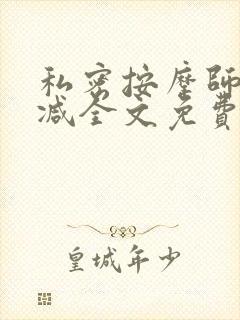 私密按摩師
减全文免費
皇城年少